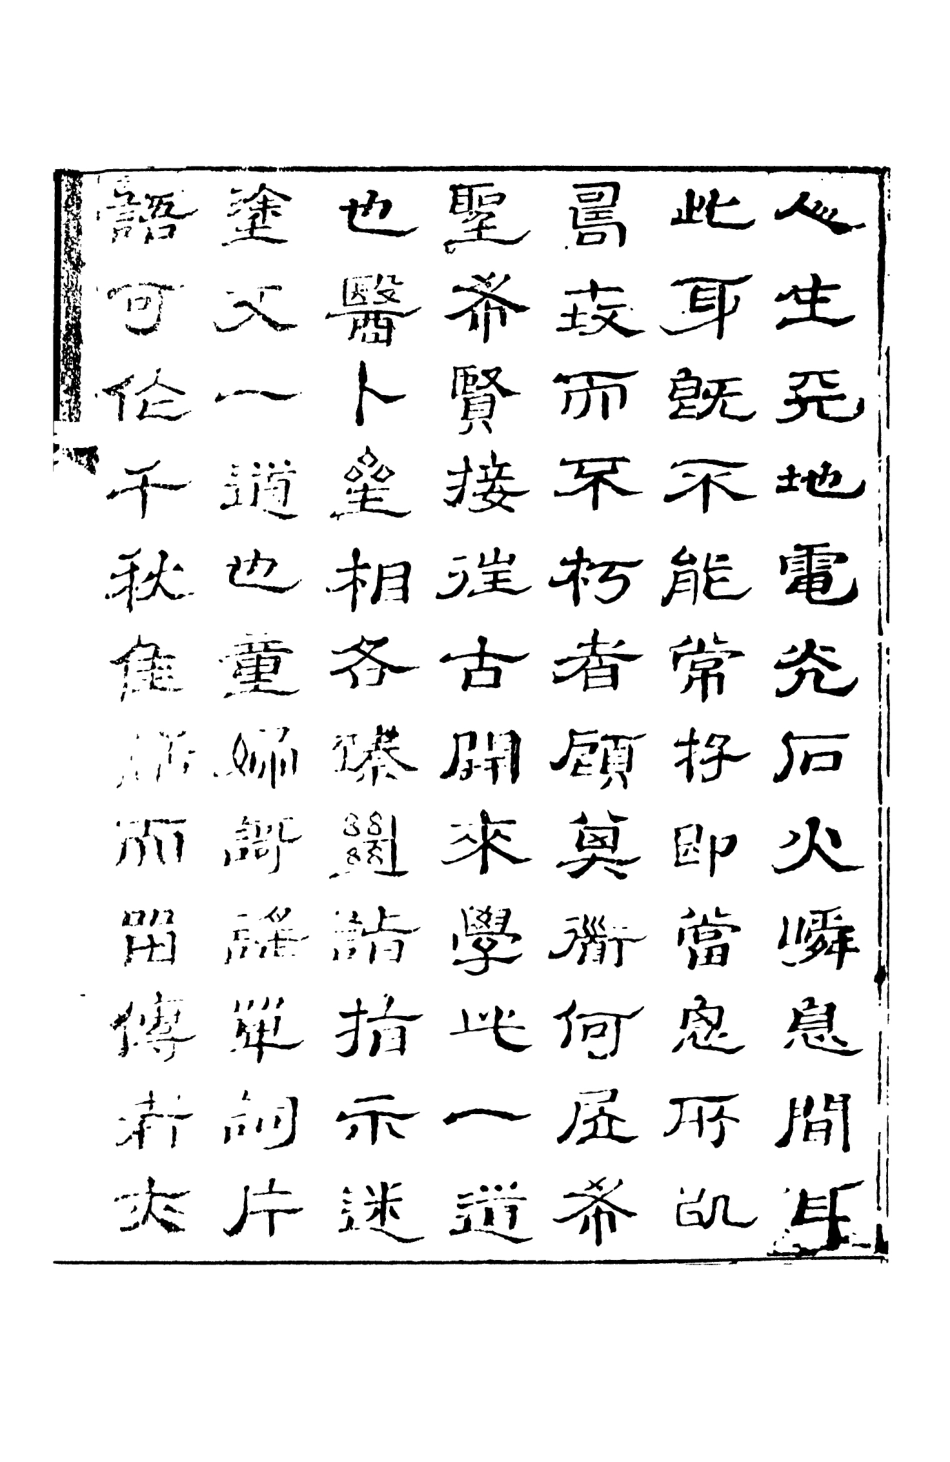 人生天地電光石火瞬息間耳
此身既不能常存即當思所以
歿而不朽者顧其衜何居希
聖希賢接往古開來學此一道
也醫卜星相各臻𢇍詣指示迷
塗又一道也童婦謌謠單詞片
語可千秋佳而留傳